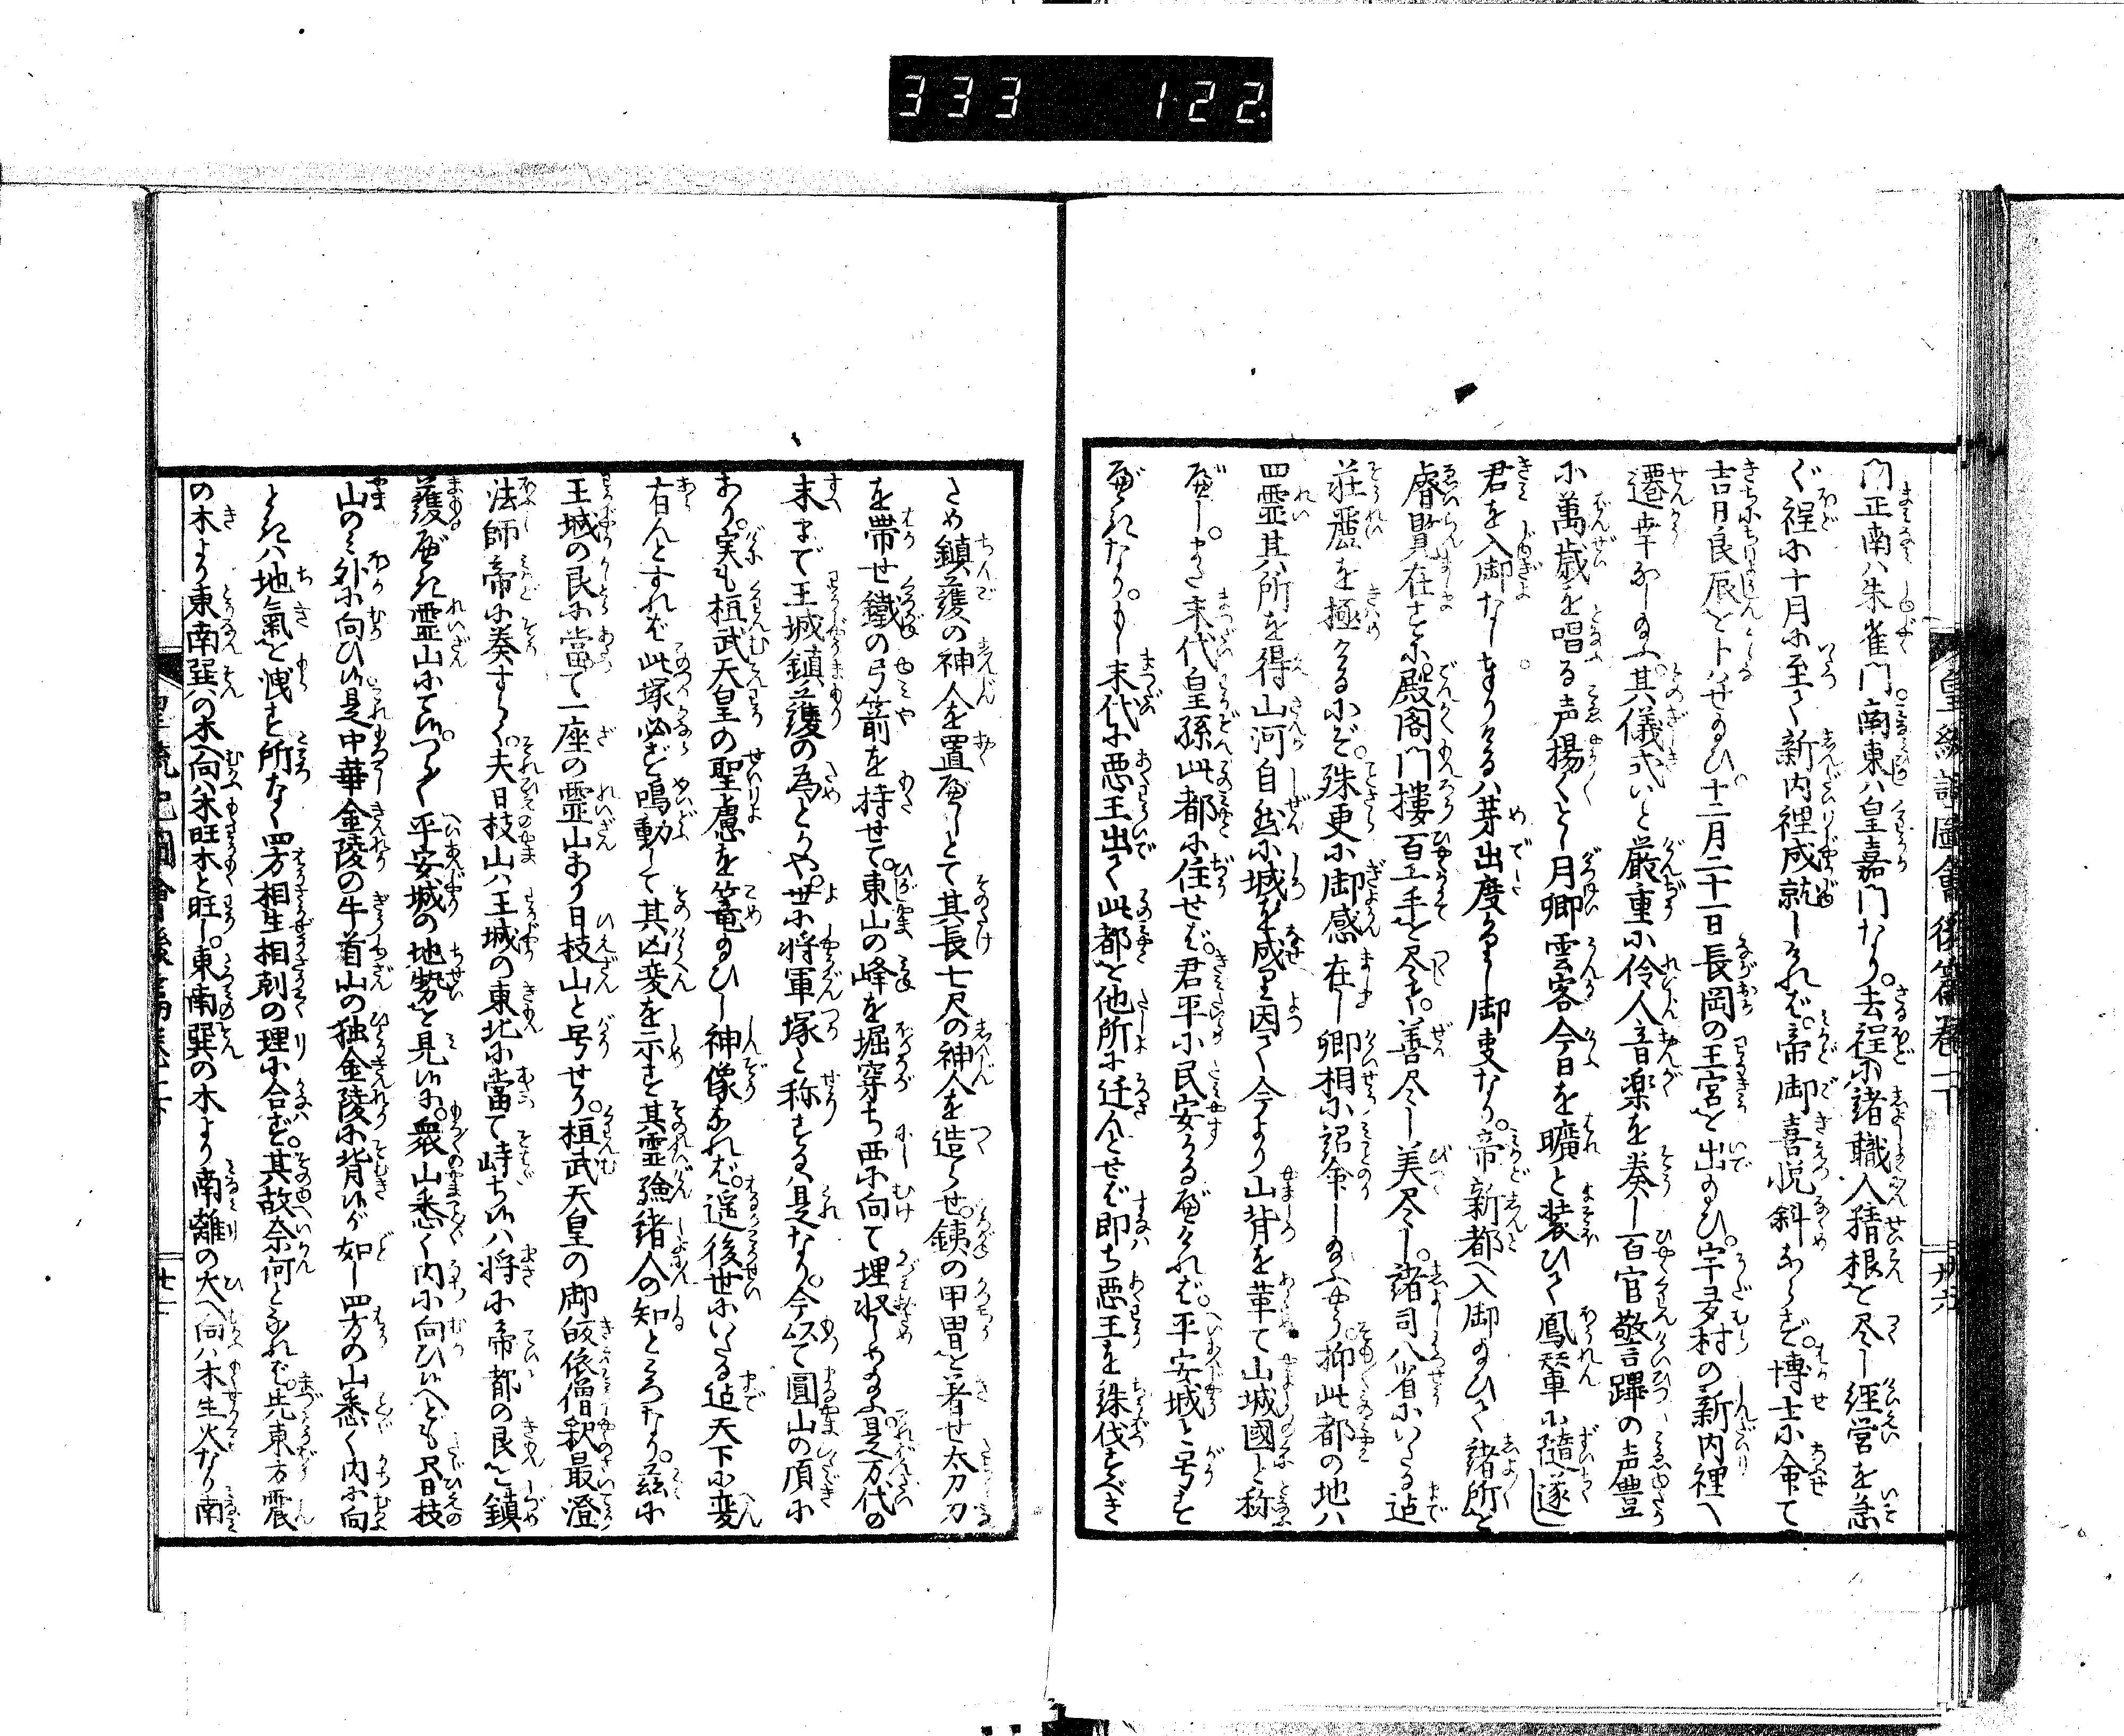 333 122.
皇統記圖會後篇巻二下
門正南ハ朱雀門南東ハ皇嘉門なり。去程に諸職人精根を尽し経営を急
ぐ程に十月に至て新内裡成就しければ。帝御喜悦斜ならず。博士に命て
吉日良辰を卜はせ給ひ。十二月二十一日長岡の王宮を出給ひ。宇多村の新内裡へ
遷幸なし給ふ。其儀式いと厳重に伶人音楽を奏し百官敬言蹕の声豊
に萬歳を唱る声揚々とし月卿雲客今日を曠と装ひて鳳輦に隨逐し
君を入御なし奉りけるハ芽出度かりし御叓なり。帝新都へ入御給ひて諸所を
睿覧在すに。殿閣門樓百工手を尽す。善尽し美尽し。諸司八省にいたる迠
荘麗を極けるにぞ。殊更に御感在し卿相に詔命し給ふやう。抑此都の地ハ
四霊其所を得山河自然に城を成り因て今より山背を革て山城國と称
べし。また末代皇孫此都に住せば。君平に民安かるべければ。平安城と号す
べきなり。もし末代に悪王出て此都を他所に迁んとせば即ち悪王を誅伐すべき
ため鎮護の神人を置べしとて其長七尺の神人を造らせ。鉄の甲冑を着せ太刀刀
を帯せ鐵の弓箭を持せて。東山の峰を堀穿ち西に向て埋収しめ給ふ。是万代の
末まで王城鎮護の為とかや。世に将軍塚と称するハ是なり。今以て圓山の頂に
あり。実も桓武天皇の聖慮を篭給ひし神像なれば。遥後世にいたる迠天下に変
有んとすれバ此塚必ず鳴動して其凶変を示す其霊驗諸人の知ところなり。茲に
王城の艮に當て一座の霊山あり日枝山と号せり。桓武天皇の御皈依僧釈最澄
法師帝に奏すらく。夫日枝山ハ王城の東北に當て峙ち候ハ将に帝都の艮を鎮
護べき霊山にて候。つら〳〵平安城の地勢を見候に。衆山悉く内に向ひ候へども只日枝
山のミ外に向ひ候是中華金陵の牛首山の独金陵に背候が如し四方の山悉く内に向
ときハ地氣を洩す所なく四方相生相剋の理に合ず。其故奈何となれば。先東方震
の木より東南巽ハの木へ向ハ木旺木と旺し。東南巽の木より南離の火へ向ハ木生火なり南